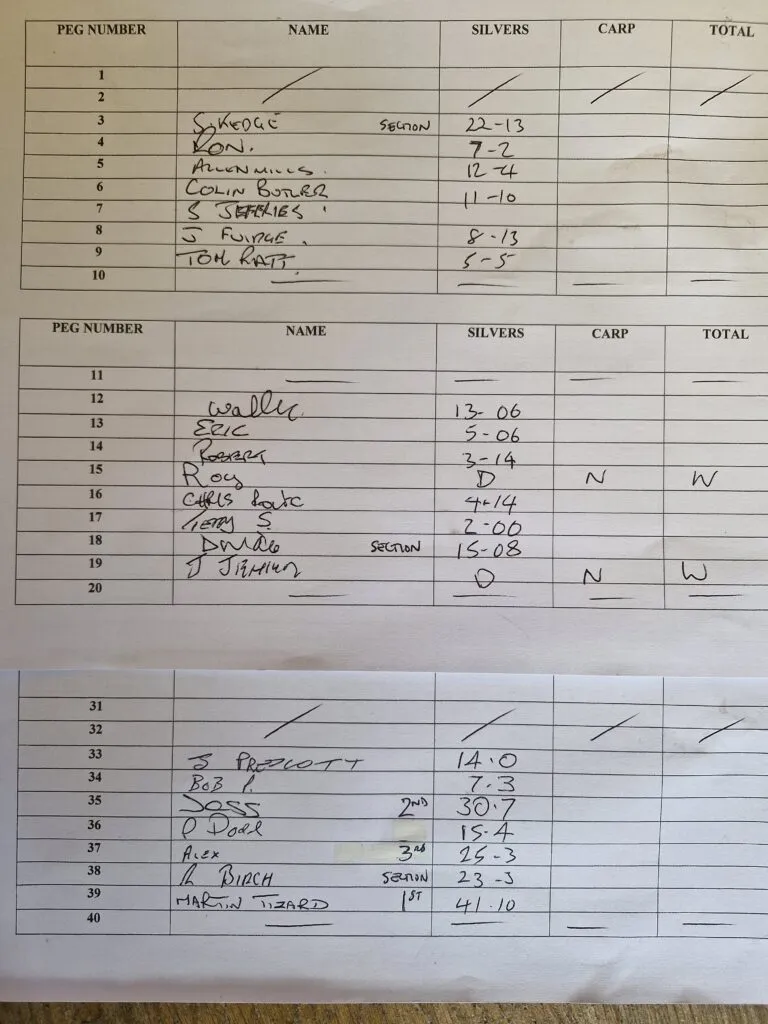 PEG NUMBER NAME SILVERS CARP TOTAL
1
2
3 S. KEDGE SECTION 22-13
4 RON. 7-2
5 ALLEN MILLS. 12-4
6 COLIN BUTLER 11-10
7 S JEFFRIES
8 J FUIDGE. 8-13
9 TOM RATT. 5-5
10
PEG NUMBER NAME SILVERS CARP TOTAL
11
12 Wally 13-06
13 ERIC 5-06
14 ROBERT 3-14
15 Roy D N W
16 CHRIS 4-14
17 TERRY S. 2-00
18 SECTION 15-08
19 J D N W
20
31
32
33 S PRESCOTT 14.0
34 BOB P. 7.3
35 JOSS 2ND 30.7
36 P 15-4
37 ALEX 3RD 25-3
38 R BIRCH SECTION 23-3
39 MARTIN TIZARD 1ST 41.10
40